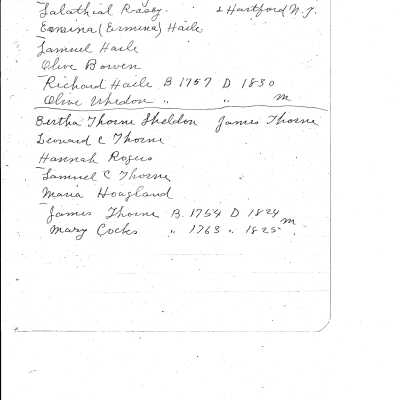 Salathial Rasey & Hartford N.Y.
Ermina (Ermina) Haile
Samuel Haile
Olive Bowen
Richard Haile B 1757 D 1830
Olive Whedon " " m
Bertha Thorne Sheldon James Thorne
Leonard C Thorne
Hannah Rogers
Samuel C Thorne
Maria Hoagland
James Thorne B. 1754 D 1824 m
Mary Cocks " 1763 " 1825